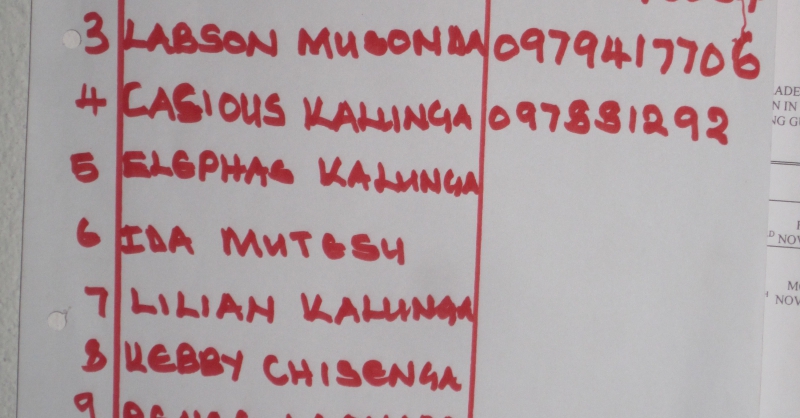 3 LABSON MUSONDA 0979417706
4 CASIOUS KALUNGA 097881292
5 ELEPHAS KALUNGA
6 IDA MUTESU
7 LILIAN KALUNGA
8 KEBBY CHISENGA
9